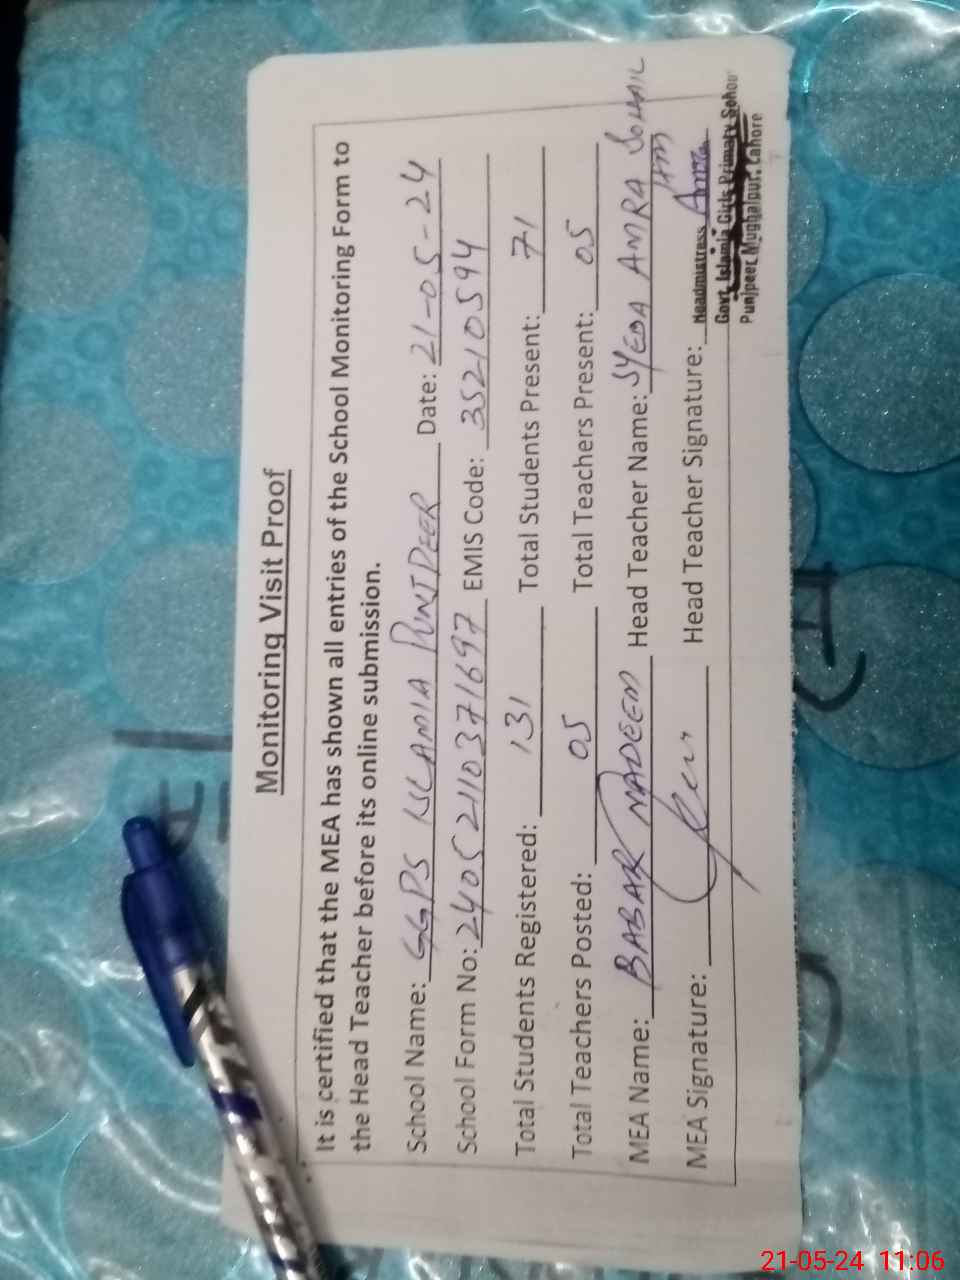 Monitoring Visit Proof
It is certified that the MEA has shown all entries of the School Monitoring Form to
the Head Teacher before its online submission.
School Name: GGPS ISLAMIA PUNJPEER Date: 21-05-24
School Form No: 24052110371697 EMIS Code: 35210594
Total Students Registered: 131 Total Students Present: 71
Total Teachers Posted: 05 Total Teachers Present: 05
MEA Name: BABAR NADEEM Head Teacher Name: SYEDA AMRA SOHAIL
MEA Signature: Head Teacher Signature:
Headmistress
Govt. Islamia Girls Primary School
Punjpeer Mughalpur, Lahore
21-05-24 11:06